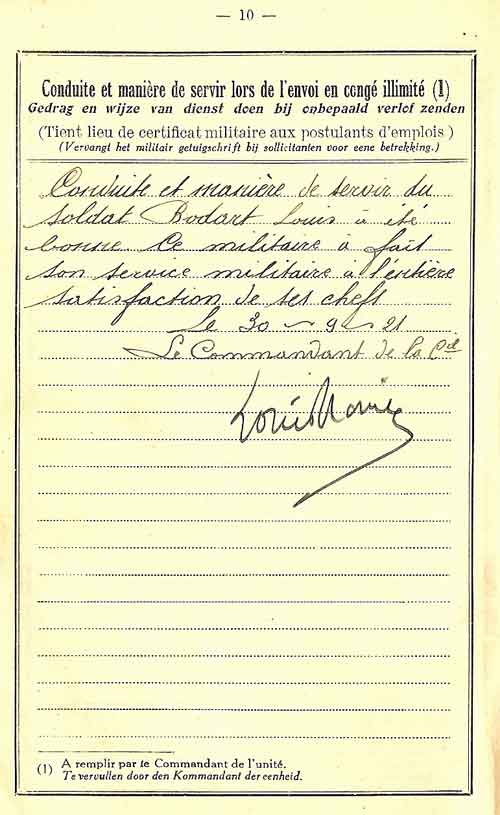 — 10 —
Conduite et manière de servir lors de l'envoi en congé illimité (1)
Gedrag en wijze van dienst doen bij onbepaald verlof zenden
(Tient lieu de certificat militaire aux postulants d'emplois)
(Vervangt het militair getuigschrift bij sollicitanten voor eene betrekking.)
Conduite et manière de servir du
soldat Bodart Louis à été
bonne Ce militaire à fait
son service militaire à l'entière
satisfaction de ses chefs
Le 30 - 9 - 21
Le Commandant de la Cie
(1) A remplir par le Commandant de l'unité.
Te vervullen door den Kommandant der eenheid.